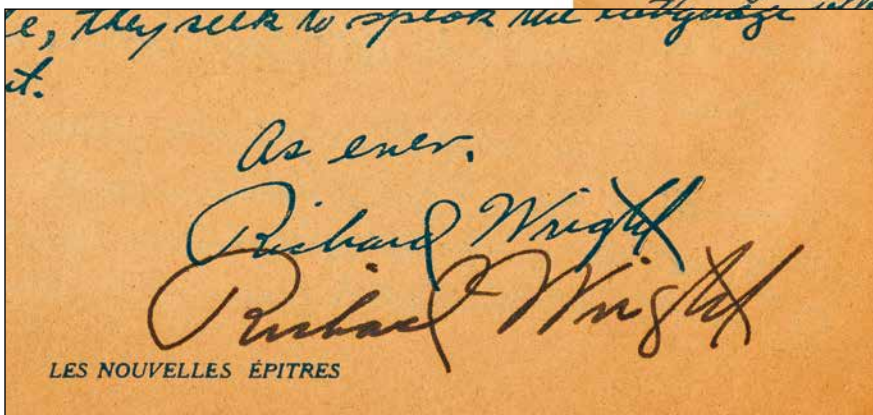 e, they seek to speak the language
it.
As ever,
Richard Wright
Richard Wright
LES NOUVELLES ÉPITRES